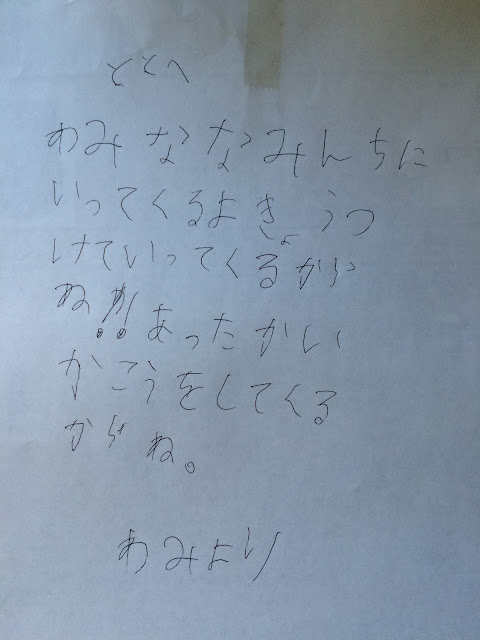 ととへ
わみ ななみんちに
いってくるよ きょうつ
けていってくるから
ね!! あったかい
かこうをしてくる
からね。
わみより